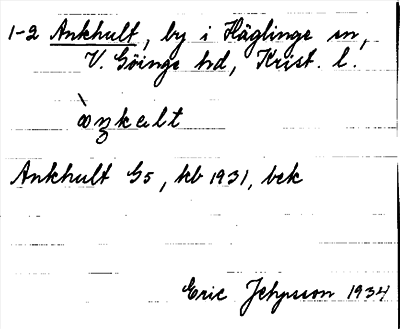 1-2 Ankhult, by i Häglinge sn,
V. Göinge hd, Krist. l.
Ankhult G5, kb 1931, bek
Eric 1934